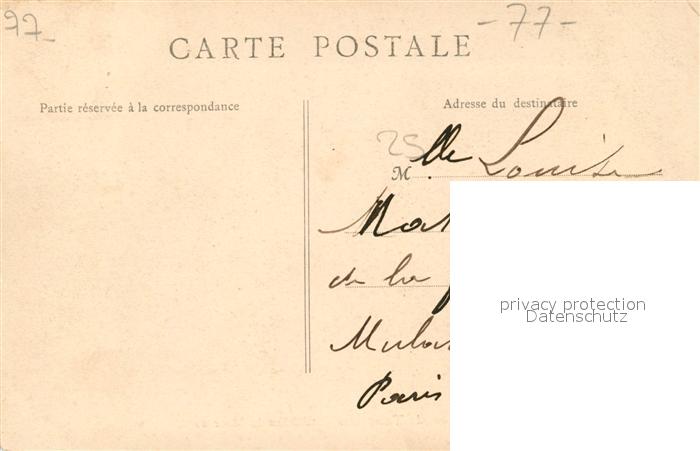 97-
-77-
CARTE POSTALE
Partie réservée à la correspondance
Adresse du destinataire
25
M lle Louise
de la
Paris
privacy protection
Datenschutz